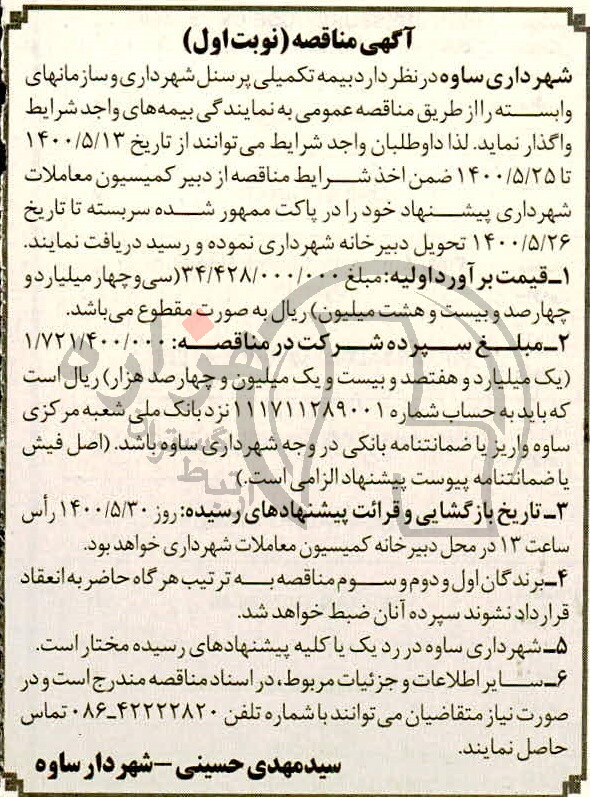 آگهی مناقصه (نوبت اول)
شهرداری ساوه در نظر دارد بیمه تکمیلی پرسنل شهرداری و سازمانهای
وابسته را از طریق مناقصه عمومی به نمایندگی بیمه‌های واجد شرایط
واگذار نماید. لذا داوطلبان واجد شرایط می‌توانند از تاریخ ۱۴۰۰/۵/۱۳
تا ۱۴۰۰/۵/۲۵ ضمن اخذ شرایط مناقصه از دبیر کمیسیون معاملات
شهرداری پیشنهاد خود را در پاکت ممهور شده سربسته تا تاریخ
۱۴۰۰/۵/۲۶ تحویل دبیرخانه شهرداری نموده و رسید دریافت نمایند.
۱ـ قیمت برآورد اولیه: مبلغ ۳۴/۴۲۸/۰۰۰/۰۰۰ (سی و چهار میلیارد و
چهارصد و بیست و هشت میلیون) ریال به صورت مقطوع می‌باشد.
۲ـ مبلغ سپرده شرکت در مناقصه: ۱/۷۲۱/۴۰۰/۰۰۰
(یک میلیارد و هفتصد و بیست و یک میلیون و چهارصد هزار) ریال است
که باید به حساب شماره ۱۱۱۷۱۱۲۸۹۰۰۱ نزد بانک ملی شعبه مرکزی
ساوه واریز یا ضمانتنامه بانکی در وجه شهرداری ساوه باشد. (اصل فیش
یا ضمانتنامه پیوست پیشنهاد الزامی است.)
۳ـ تاریخ بازگشایی و قرائت پیشنهادهای رسیده: روز ۱۴۰۰/۵/۳۰ رأس
ساعت ۱۳ در محل دبیرخانه کمیسیون معاملات شهرداری خواهد بود.
۴ـ برندگان اول و دوم و سوم مناقصه به ترتیب هرگاه حاضر به انعقاد
قرارداد نشوند سپرده آنان ضبط خواهد شد.
۵ـ شهرداری ساوه در رد یک یا کلیه پیشنهادهای رسیده مختار است.
۶ـ سایر اطلاعات و جزئیات مربوطه، در اسناد مناقصه مندرج است و در
صورت نیاز متقاضیان می‌توانند با شماره تلفن ۴۲۲۲۲۸۲۰ـ۰۸۶ تماس
حاصل نمایند.
سیدمهدی حسینی – شهردار ساوه
هزاره